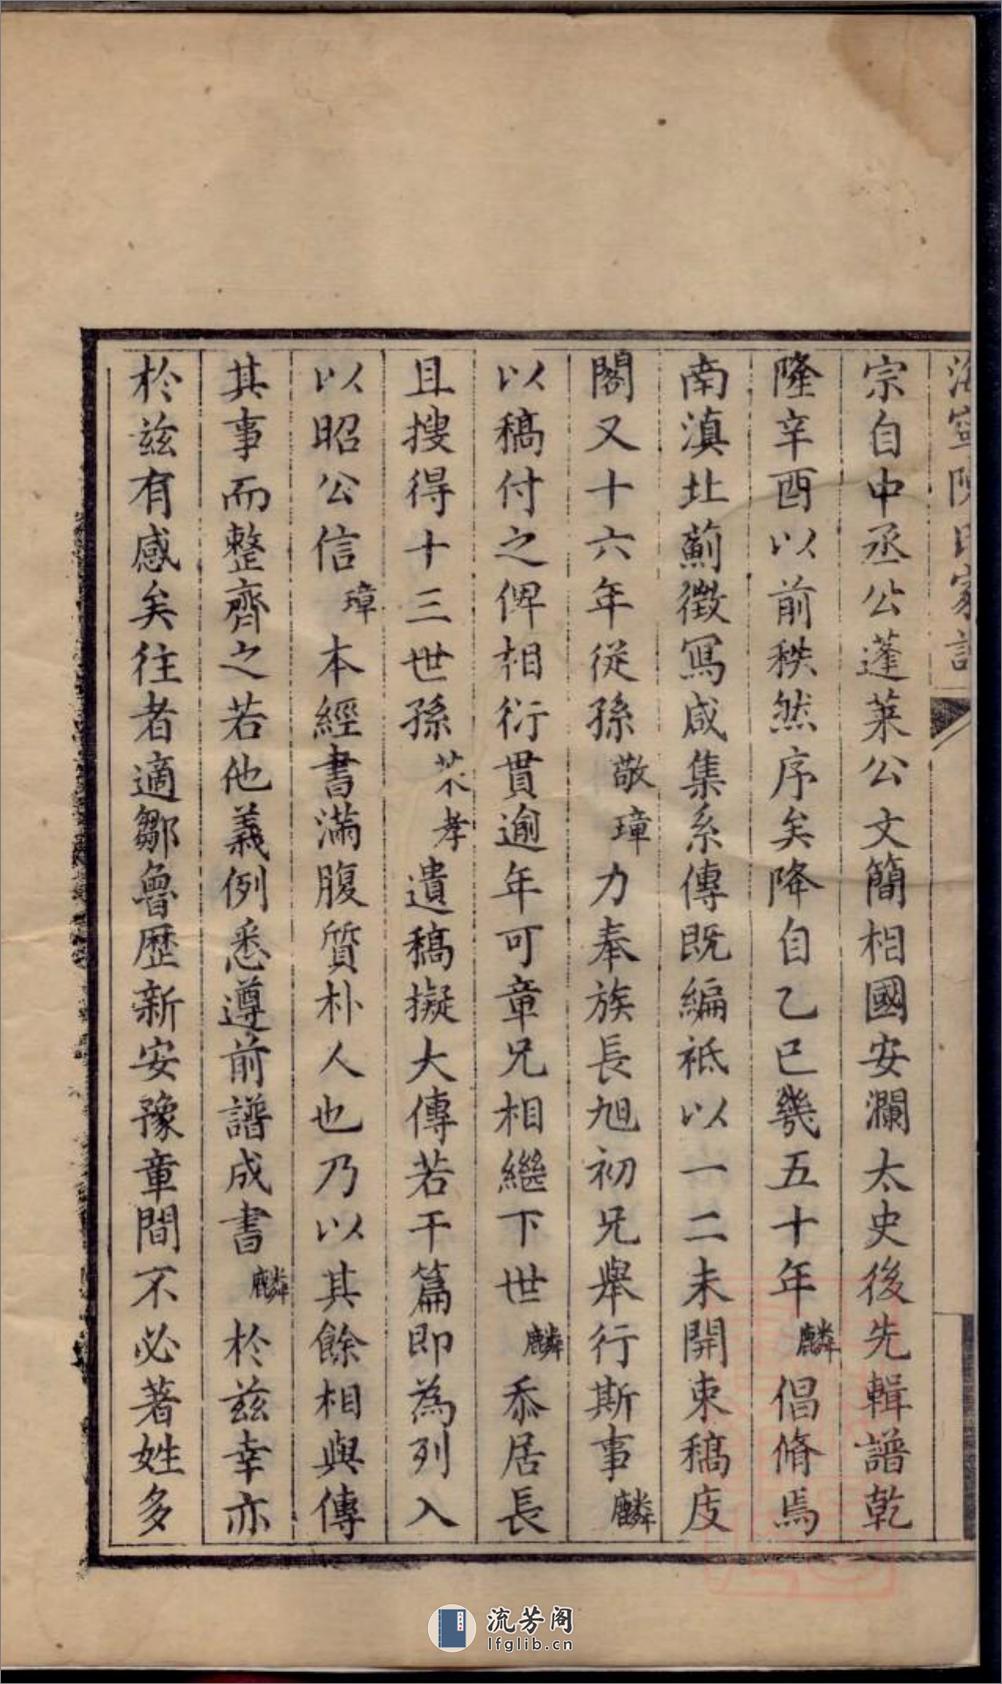 海寧陳氏家譜
宗自中丞公蓬萊公文簡相國安瀾太史後先輯譜乾
隆辛酉以前秩然序矣降自乙巳幾五十年麟倡脩焉
南滇北薊徵寫咸集系傳既編祗以一二未開束稿庋
閣又十六年從孫敬璋力奉族長旭初兄舉行斯事麟
以稿付之俾相衍貫逾年可章兄相繼下世麟忝居長
且搜得十三世孫芣孝遺稿擬大傳若干篇即為列入
以昭公信璋本經書滿腹質朴人也乃以其餘相與傳
其事而整齊之若他義例悉遵前譜成書麟於茲幸亦
於茲有感矣往者適鄒魯歷新安豫章間不必著姓多
流芳阁
lfglib.cn